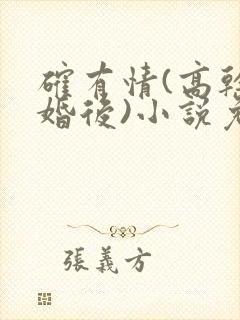 確有情(高幹
婚後)小說
張義方